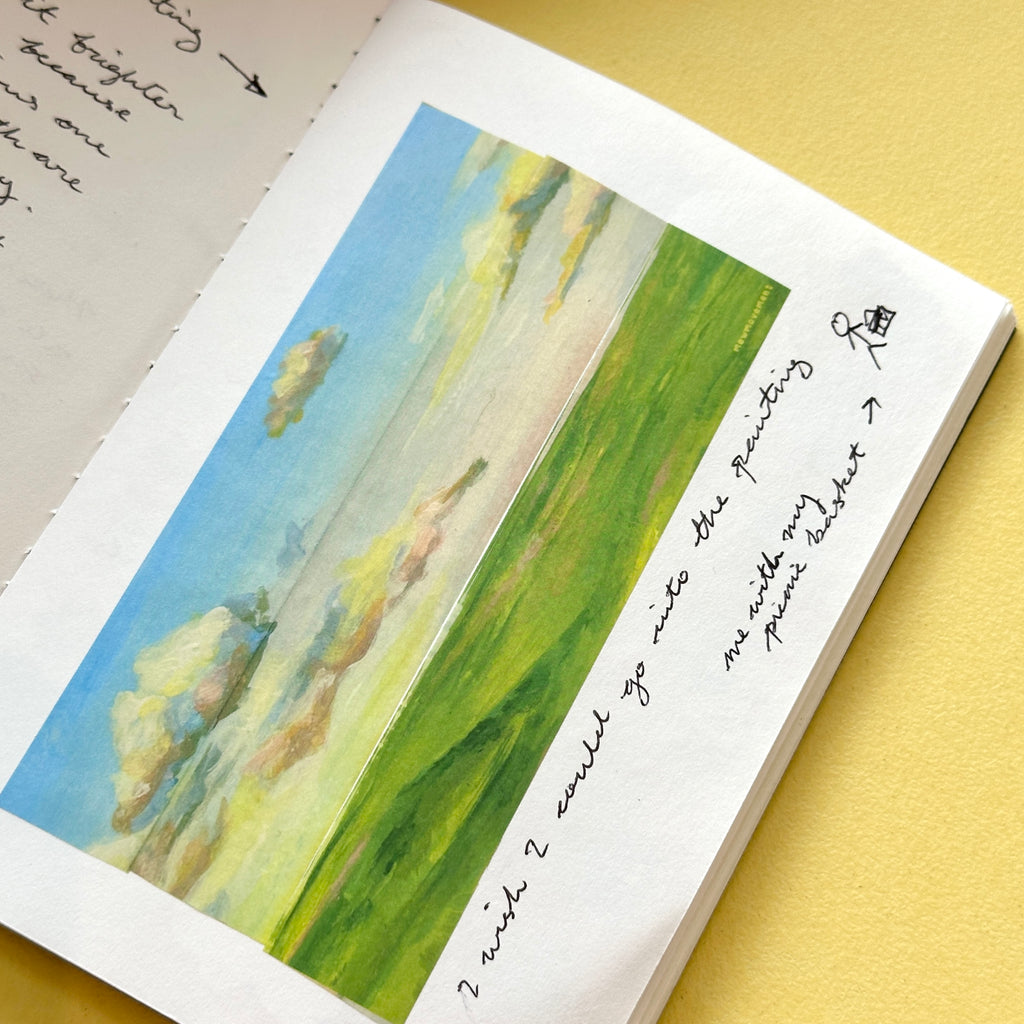 it brighter
because
one
are
I wish I could go into the painting
me with my
picnic basket →